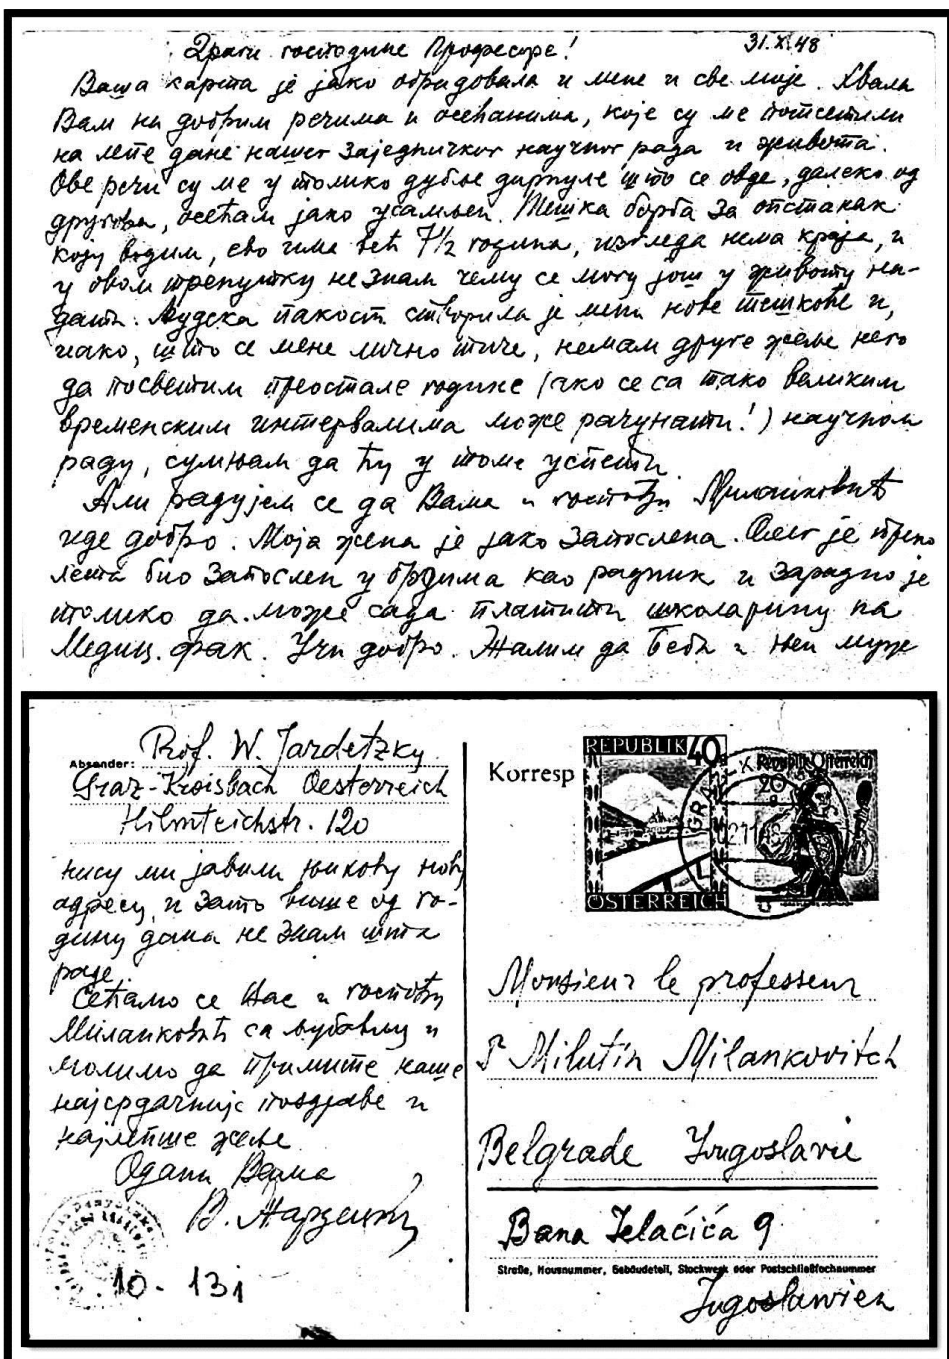 Драги господине Професоре! 31.X.48
Ваша карта је јако обрадовала и мене и све моје. Хвала
Вам на добрим речима и осећањима, које су ме потсетили
на лепе дане нашег заједничког научног рада и живота.
Ове речи су ме у толико дубље дирнуле што се овде, далеко од
другова, осећам јако усамљен. Тешка борба за опстанак
коју водим, ево има већ 7½ година, изгледа нема краја, и
у овом тренутку не знам чему се могу још у животу на-
дати. Људска пакост створила је мени нове тешкоће и,
иако, што се мене лично тиче, немам друге жеље него
да посветим преостале године (ако се са тако великим
временским интервалима може рачунати!) научном
раду, сумњам да ћу у томе успети
Али радујем се да Вама и госпођи Миланковић
иде добро. Моја жена је јако запослена. Олег је преко
лета био запослен у брдима као радник и зарадио је
толико да може сада платити школарину на
Медиц. фак. Учи добро. Жалим да Беба и њен муж
Absender: Prof. W. Jardetzky
Graz-Kroisbach Oesterreich
Hilmteichstr. 120
нису ми јавили њихову нову
адресу, и зато више од го-
дину дана не знам шта
раде
Сећамо се Вас и госпођу
Миланковић са љубављу и
молимо да примите наше
најсрдачније поздраве и
најлепше жеље
Одани Вама
В. Жардецки
10-131
Korresp
REPUBLIK 40
ÖSTERREICH
Republik Österreich
20
GRAZ
Monsieur le professeur
Milutin Milankovitch
Belgrade Yougoslavie
Bana Jelačića 9
Straße, Hausnummer, Gebäudeteil, Stockwerk oder Postschließfachnummer
Jugoslawien